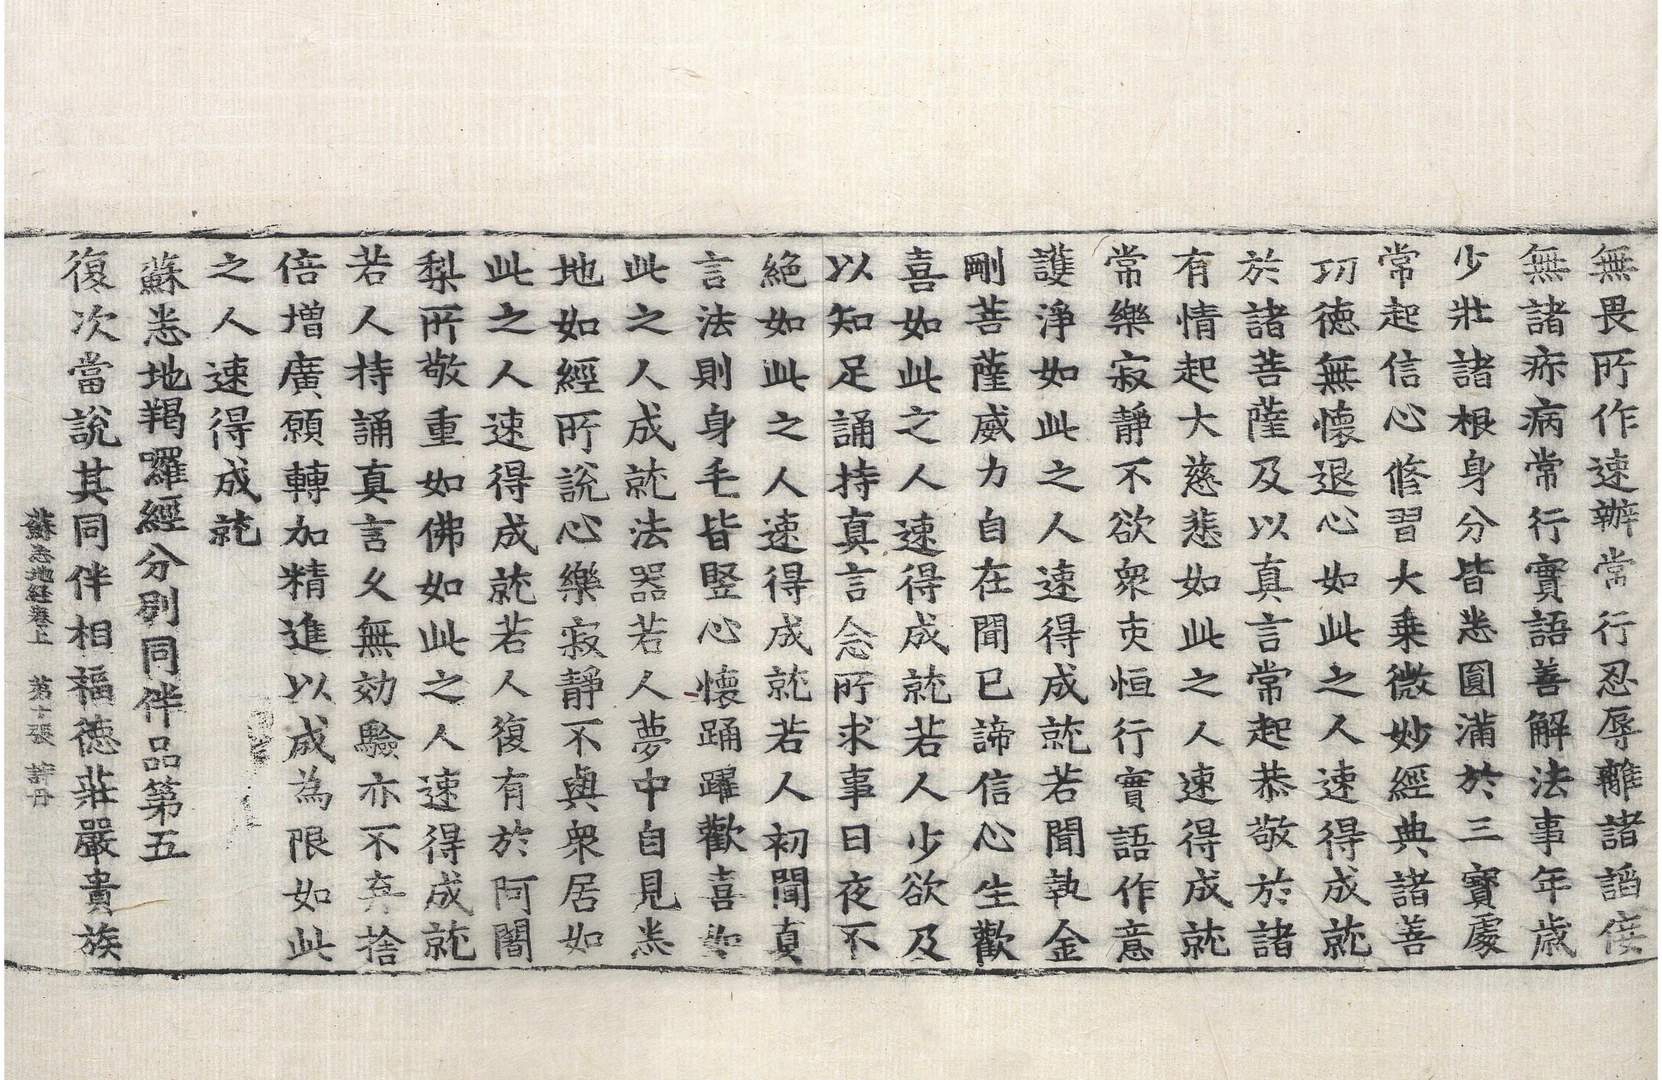 無畏所作速辦常行忍辱離諸諂侫
無諸疾病常行實語善解法事年歲
少壯諸根身分皆悉圓滿於三寶處
常起信心修習大乗微妙經典諸善
功德無懷退心如此之人速得成就
於諸菩薩及以真言常起恭敬於諸
有情起大慈悲如此之人速得成就
常樂寂靜不欲衆恒行實語作意
護淨如此之人速得成就若聞執金
剛菩薩威力自在聞已諦信心生歡
喜如此之人速得成就若人少欲及
以知足誦持真言念所求事日夜不
絕如此之人速得成就若人初聞真
言法則身毛皆竪心懷踊躍歡喜如
此之人成就法器若人夢中自見悉
地如經所說心樂寂靜不與衆居如
此之人速得成就若人復有於阿闍
梨所敬重如佛如此之人速得成就
若人持誦真言久無効驗亦不弃捨
倍增廣願轉加精進以成為限如此
之人速得成就
蘇悉地羯囉經分別同伴品第五
復次當說其同伴相福德莊嚴貴族
蘇悉地經卷上 第十張